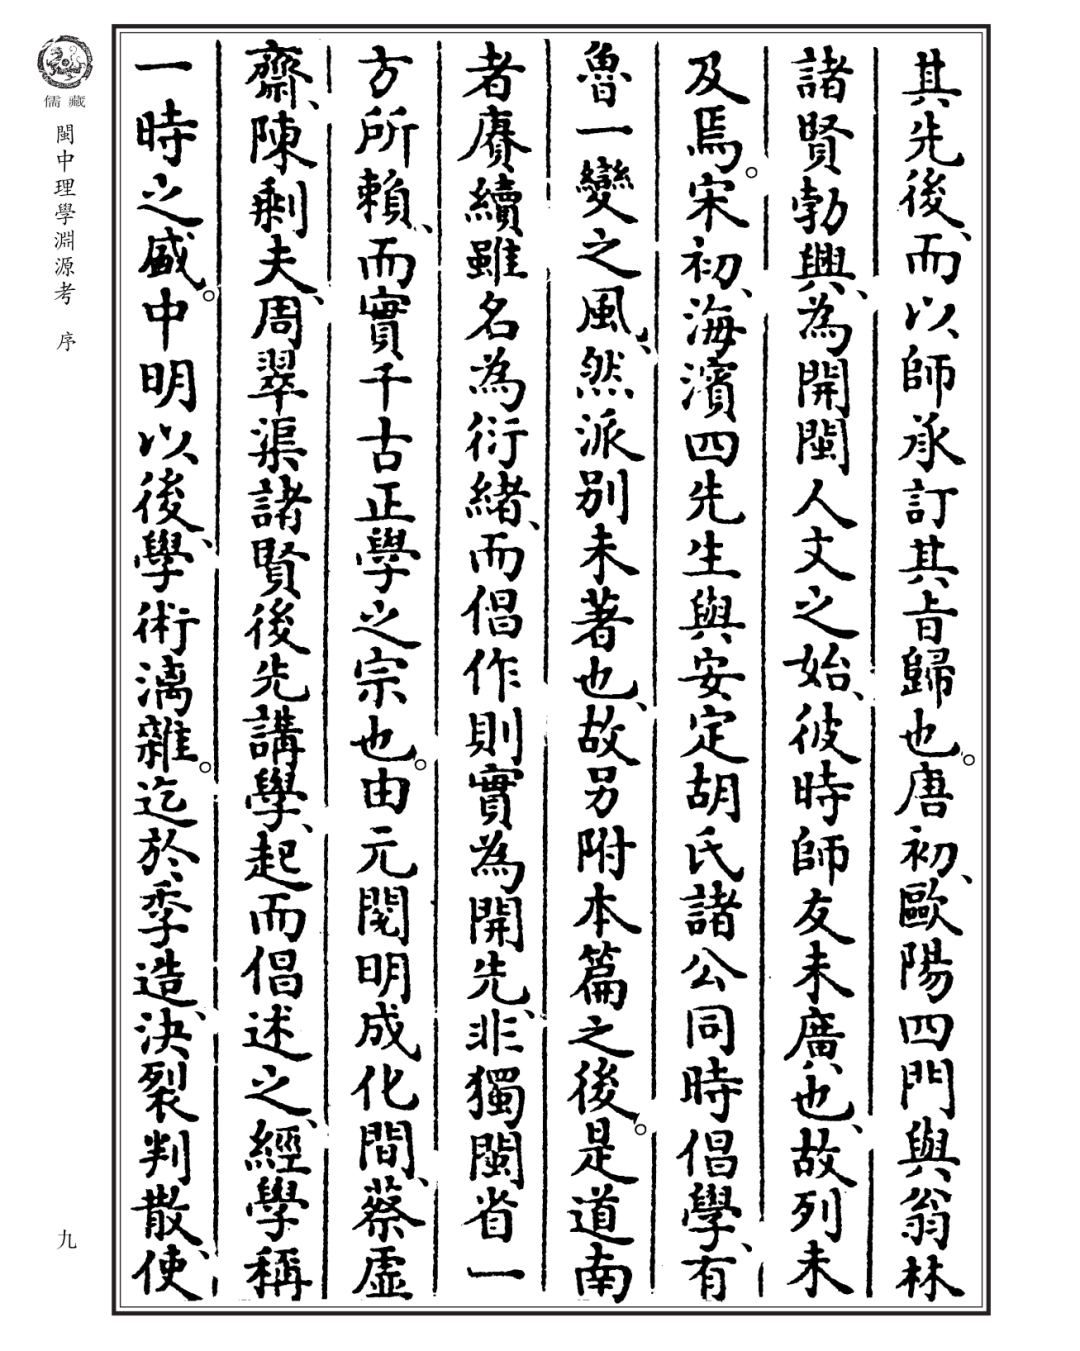 其先後、而以師承訂其旨歸也。唐初、歐陽四門與翁林
諸賢勃興、為開閩人文之始、彼時師友未廣也、故列未
及焉。宋初、海濱四先生與安定胡氏諸公同時倡學、有
魯一變之風、然派别未著也、故另附本篇之後。是道南
者賡續雖名為衍緒、而倡作則實為開先、非獨閩省一
方所賴、而實千古正學之宗也。由元閱明成化間、蔡虛
齋、陳剩夫、周翠渠諸賢後先講學、起而倡述之、經學稱
一時之盛。中明以後、學術漓雜。迄於季造、決裂判散、使
儒藏
閩中理學淵源考 序
九